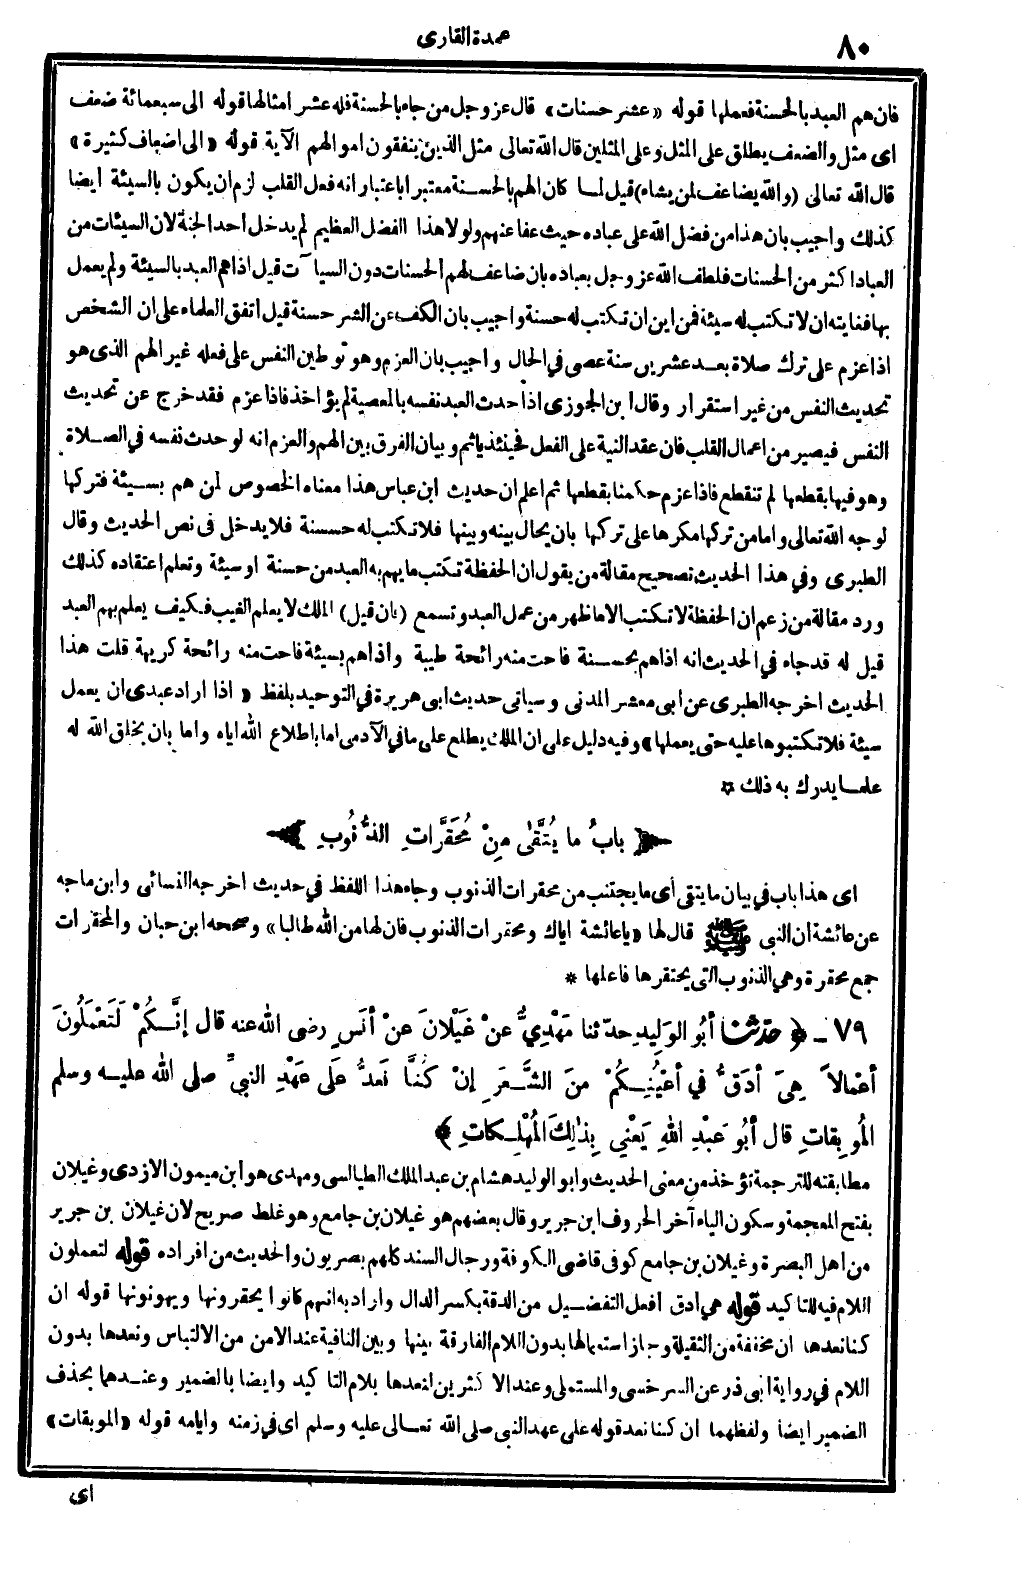 ٨٠
عمدة القارى
فان هم العبد بالحسنة فعملها قوله «عشر حسنات» قال عز وجل من جاء بالحسنة فله عشر امثالها قوله الى سبعمائة ضعف
اى مثل والضعف يطلق على المثل وعلى المثلين قال الله تعالى مثل الذين ينفقون اموالهم الآية قوله «الى اضعاف كثيرة»
قال الله تعالى (والله يضاعف لمن يشاء) قيل لما كان الهم بالحسنة معتبرا باعتبار انه فعل القلب لزم ان يكون بالسيئة ايضا
كذلك واجيب بان هذا من فضل الله على عباده حيث عفا عنهم ولولا هذا الفضل العظيم لم يدخل احد الجنة لان السيئات من
العباد اكثر من الحسنات فلطف الله عز وجل بعباده بان ضاعف لهم الحسنات دون السيآت قيل اذا هم العبد بالسيئة ولم يعمل
بها فغايته ان لا تكتب له سيئة فمن اين ان تكتب له حسنة واجيب بان الكف عن الشر حسنة قيل اتفق العلماء على ان الشخص
اذا عزم على ترك صلاة بعد عشرين سنة عصى في الحال واجيب بان العزم وهو توطين النفس على فعله غير الهم الذى هو
تحديث النفس من غير استقرار وقال ابن الجوزى اذا حدث العبد نفسه بالمعصية لم يؤاخذ فاذا عزم فقد خرج عن تحديث
النفس فيصير من اعمال القلب فان عقد النية على الفعل فحينئذ يأثم وبيان الفرق بين الهم والعزم انه لو حدث نفسه في الصلاة
وهو فيها بقطعها لم تنقطع فاذا عزم حكمنا بقطعها ثم اعلم ان حديث ابن عباس هذا معناه الخصوص لمن هم بسيئة فتركها
لوجه الله تعالى واما من تركها مكرها على تركها بان يحال بينه وبينها فلا تكتب له حسنة فلا يدخل فى نص الحديث وقال
الطبرى وفي هذا الحديث تصحيح مقالة من يقول ان الحفظة تكتب ما يهم به العبد من حسنة او سيئة وتعلم اعتقاده كذلك
ورد مقالة من زعم ان الحفظة لا تكتب الا ما ظهر من عمل العبد وتسمع (فان قيل) الملك لا يعلم الغيب فكيف يعلم بهم العبد
قيل له قد جاء في الحديث انه اذا هم بحسنة فاحت منه رائحة طيبة واذا هم بسيئة فاحت منه رائحة كريهة قلت هذا
الحديث اخرجه الطبرى عن ابى معشر المدنى وسيأتى حديث ابى هريرة في التوحيد بلفظ «اذا اراد عبدى ان يعمل
سيئة فلا تكتبوها عليه حتى يعملها» وفيه دليل على ان الملك يطلع على ما في الآدمى اما باطلاع الله اياه واما بان يخلق الله له
علما يدرك به ذلك *
﴿ بابُ ما يُتَّقَى مِنْ مُحَقَّرَاتِ الذُّنُوبِ ﴾
اى هذا باب في بيان ما يتقى أى ما يجتنب من محقرات الذنوب وجاء هذا اللفظ في حديث اخرجه النسائى وابن ماجه
عن عائشة ان النبى ﷺ قال لها «يا عائشة اياك ومحقرات الذنوب فان لها من الله طالبا» وصححه ابن حبان والمحقرات
جمع محقرة وهي الذنوب التى يحتقرها فاعلها *
٧٩ ـ ﴿ حدثنا أبُو الوَلِيدِ حدّثنا مَهْدِيٌّ عنْ غَيْلانَ عنْ أنَسٍ رضى الله عنه قال إنَّكُمْ لَتَعْمَلُونَ
أعْمالاً هِىَ أدَقُّ في أعْيُنِكُمْ منَ الشَّعَرِ إنْ كُنَّا نَعدُّ عَلَى عَهْدِ النبيِّ صلى الله عليه وسلم
المُوبِقاتِ قال أبُو عَبْدِ اللهِ يَعْنِي بِذَلِكَ المُهْلِكاتِ ﴾
مطابقته للترجمة تؤخذ من معنى الحديث وابو الوليد هشام بن عبد الملك الطيالسى ومهدى هو ابن ميمون الازدى وغيلان
بفتح المعجمة وسكون الياء آخر الحروف ابن جرير وقال بعضهم هو غيلان بن جامع وهو غلط صريح لان غيلان بن جرير
من اهل البصرة وغيلان بن جامع كوفى قاضى الكوفة ورجال السند كلهم بصريون والحديث من افراده قوله لتعملون
اللام فيه للتاكيد قوله هي ادق افعل التفضيل من الدقة بكسر الدال واراد به انهم كانوا يحقرونها ويهونونها قوله ان
كنا نعدها ان مخففة من الثقيلة وجاز استعمالها بدون اللام الفارقة بينها وبين النافية عند الامن من الالتباس ونعدها بدون
اللام في رواية ابى ذر عن السرخسى والمستملى وعند الاكثرين لنعدها بلام التاكيد وايضا بالضمير وعندهما بحذف
الضمير ايضا ولفظهما ان كنا نعد قوله على عهد النبى صلى الله تعالى عليه وسلم اى في زمنه وايامه قوله «الموبقات»
اى